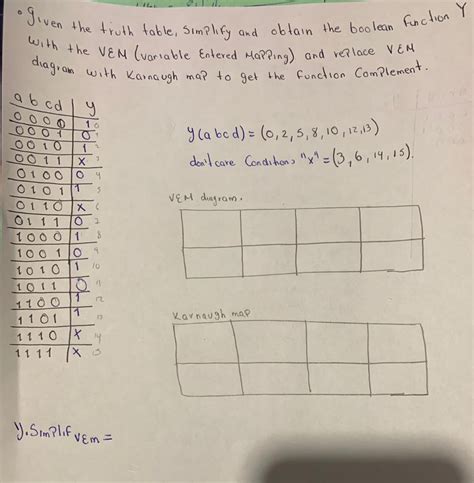 • Given the truth table, simplify and obtain the boolean function Y
with the VEM (variable Entered Mapping) and replace VEM
diagram with Karnaugh map to get the function Complement.
a b c d | y
0 0 0 0 | 1 0
0 0 0 1 | 0 1
0 0 1 0 | 1 2
0 0 1 1 | x 3
0 1 0 0 | 0 4
0 1 0 1 | 1 5
0 1 1 0 | x 6
0 1 1 1 | 0 7
1 0 0 0 | 1 8
1 0 0 1 | 0 9
1 0 1 0 | 1 10
1 0 1 1 | 0 11
1 1 0 0 | 1 12
1 1 0 1 | 1 13
1 1 1 0 | x 14
1 1 1 1 | x 15
y(abcd) = (0,2,5,8,10,12,13)
don't care Conditions "x" = (3,6,14,15).
VEM diagram.
Karnaugh map
y.Simplif VEM =